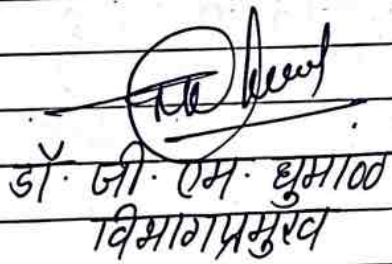 डॉ. जी. एम. धुमाळ
विभागप्रमुख